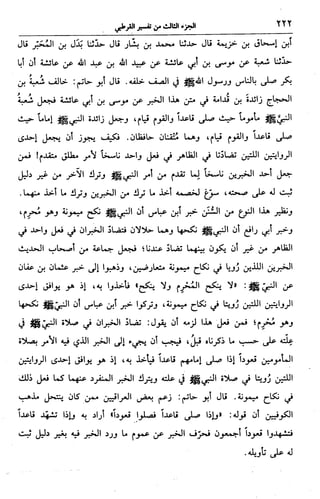 ٢٢٢ الجزء الثالث من تفسير القرطبي
أبن إسحاق بن خزيمة قال حدثنا محمد بن بشار قال حدّثنا بَدَل بن المُحَبَّر قال
حدّثنا شعبة عن موسى بن أبي عائشة عن عبيد الله بن عبد الله عن عائشة أن أبا
بكر صلى بالناس ورسول الله ﷺ في الصف خلفه. قال أبو حاتم: خالف شُعبةُ بن
الحجاج زائدةَ بن قُدامة في متن هذا الخبر عن موسى بن أبي عائشة فجعل شُعبةُ
النبيَّ ﷺ مأموماً حيث صلى قاعداً والقوم قيام، وجعل زائدة النبيَّ ﷺ إماماً حيث
صلى قاعداً والقوم قيام، وهما مُتْقنان حافظان. فكيف يجوز أن يجعل إحدى
الروايتين اللتين تضادّتا في الظاهر في فعل واحد ناسخاً لأمر مطلق متقدم! فمن
جعل أحد الخبرين ناسخاً لِما تقدم من أمر النبي ﷺ وترك الآخر من غير دليل
ثبت له على صحته، سوّغ لخصمه أخذ ما ترك من الخبرين وترك ما أخذ منهما.
ونظير هذا النوع من السُّنَن خبر أبن عباس أن النبيّ ﷺ نكح ميمونة وهو مُحرم،
وخبر أبي رافع أن النبيّ ﷺ نكحها وهما حلالان فتضادّ الخبران في فعل واحد في
الظاهر من غير أن يكون بينهما تضادّ عندنا؛ فجعل جماعة من أصحاب الحديث
الخبرين اللذين رُويا في نكاح ميمونة متعارضين، وذهبوا إلى خبر عثمان بن عفان
عن النبيّ ﷺ: «لا يَنكح المُحْرِم ولا يُنكح» فأخذوا به، إذ هو يوافق إحدى
الروايتين اللتين رُويتا في نكاح ميمونة، وتركوا خبر أبن عباس أن النبيّ ﷺ نكحها
وهو مُحْرِم؛ فمن فعل هذا لزمه أن يقول: تضادّ الخبران في صلاة النبيّ ﷺ في
عِلّته على حسب ما ذكرناه قَبلُ، فيجب أن يجيء إلى الخبر الذي فيه الأمر بصلاة
المأمومين قعوداً إذا صلى إمامهم قاعداً فيأخذ به، إذ هو يوافق إحدى الروايتين
اللتين رُويتا في صلاة النبيّ ﷺ في علته ويترك الخبر المنفرد عنهما كما فعل ذلك
في نكاح ميمونة. قال أبو حاتم: زعم بعض العراقيين ممن كان ينتحل مذهب
الكوفيين أن قوله: «وإذا صلى قاعداً فصلوا قعوداً» أراد به وإذا تشهّد قاعداً
فتشهدوا قعوداً أجمعون فحرّف الخبر عن عموم ما ورد الخبر فيه بغير دليل ثبت
له على تأويله.